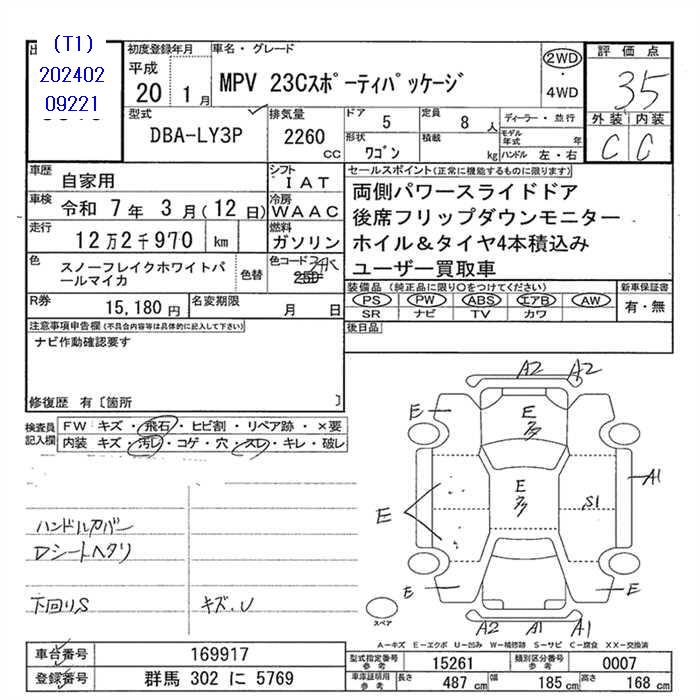 (T1)
202402
09221
初度登録年月
平成
20 1月
車名・グレード
MPV 23Cスポーティパッケージ
2WD
・
4WD
評価点
3.5
外装 内装
C C
型式
DBA-LY3P
排気量
2260
CC
ドア 5
定員 8 人
形状 ワゴン
積載 kg
ディーラー・並行
モデル年式 年
ハンドル 左・右
車歴 自家用
シフト IAT
車検 令和 7年 3月(12日)
冷房 WAAC
走行 12万2千970 km
燃料 ガソリン
色 スノーフレイクホワイトパールマイカ
色替
色コード
25D
R券 15,180円
名変期限 月 日
セールスポイント(正常に機能するものに限ります)
両側パワースライドドア
後席フリップダウンモニター
ホイル&タイヤ4本積込み
ユーザー買取車
装備品(純正品に限り○をつけてください)
PS PW ABS エアB AW
SR ナビ TV カワ
新車保証書
有・無
後日品
注意事項申告欄(不具合内容等は具体的に記入して下さい)
ナビ作動確認要す
修復歴 有〔箇所 〕
検査員記入欄
FW キズ・飛石・ヒビ割・リペア跡・×要
内装 キズ・汚レ・コゲ・穴・スレ・キレ・破レ
ハンドルカバー
Dシートヘタリ
下回りS キズ.U
A2 A2
E E
多
E
E
多
S1 A1
E E
A2 A1 A1
スペア
A-キズ E-エクボ U-凹み W-補修跡 S-サビ C-腐食 XX-交換済
車台番号 169917
登録番号 群馬 302 に 5769
型式指定番号 参考 15261
類別区分番号 参考 0007
車庫証明用 参考 長さ 487cm 幅 185cm 高さ 168cm